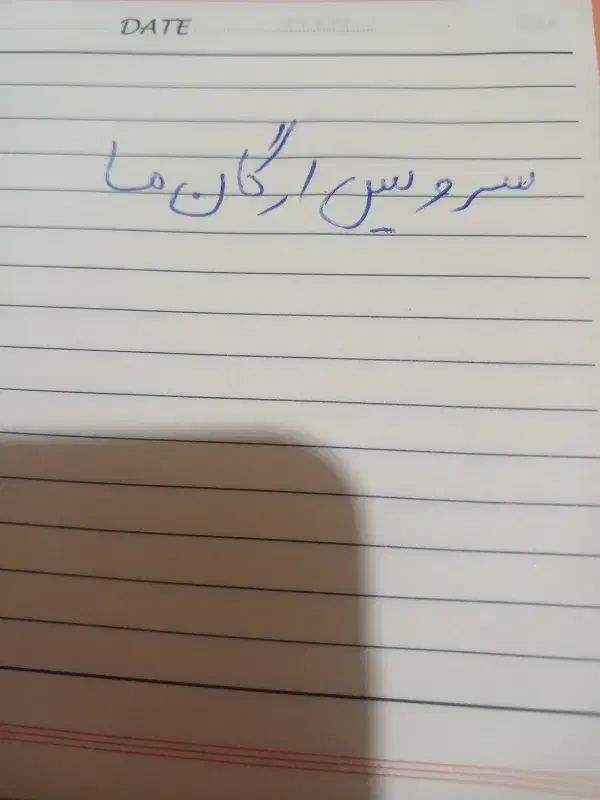 DATE
سرویس ارگان ما